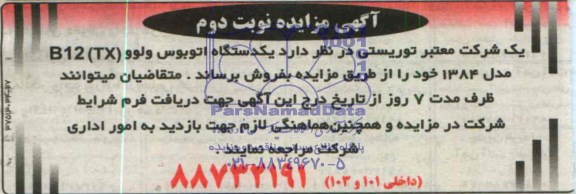 آگهی مزایده نوبت دوم
یک شرکت معتبر توریستی در نظر دارد یکدستگاه اتوبوس ولوو B12 (TX)
مدل ۱۳۸۴ خود را از طریق مزایده بفروش برساند . متقاضیان میتوانند
ظرف مدت ۷ روز از تاریخ درج این آگهی جهت دریافت فرم شرایط
ParsNamadData
شرکت در مزایده و همچنین هماهنگی لازم جهت بازدید به امور اداری
شرکت مراجعه نمایند .
۰۲۱-۸۸۳۴۹۶۷۰-۵
(داخلی ۱۰۱ و ۱۰۳) ۸۸۷۳۲۱۹۱